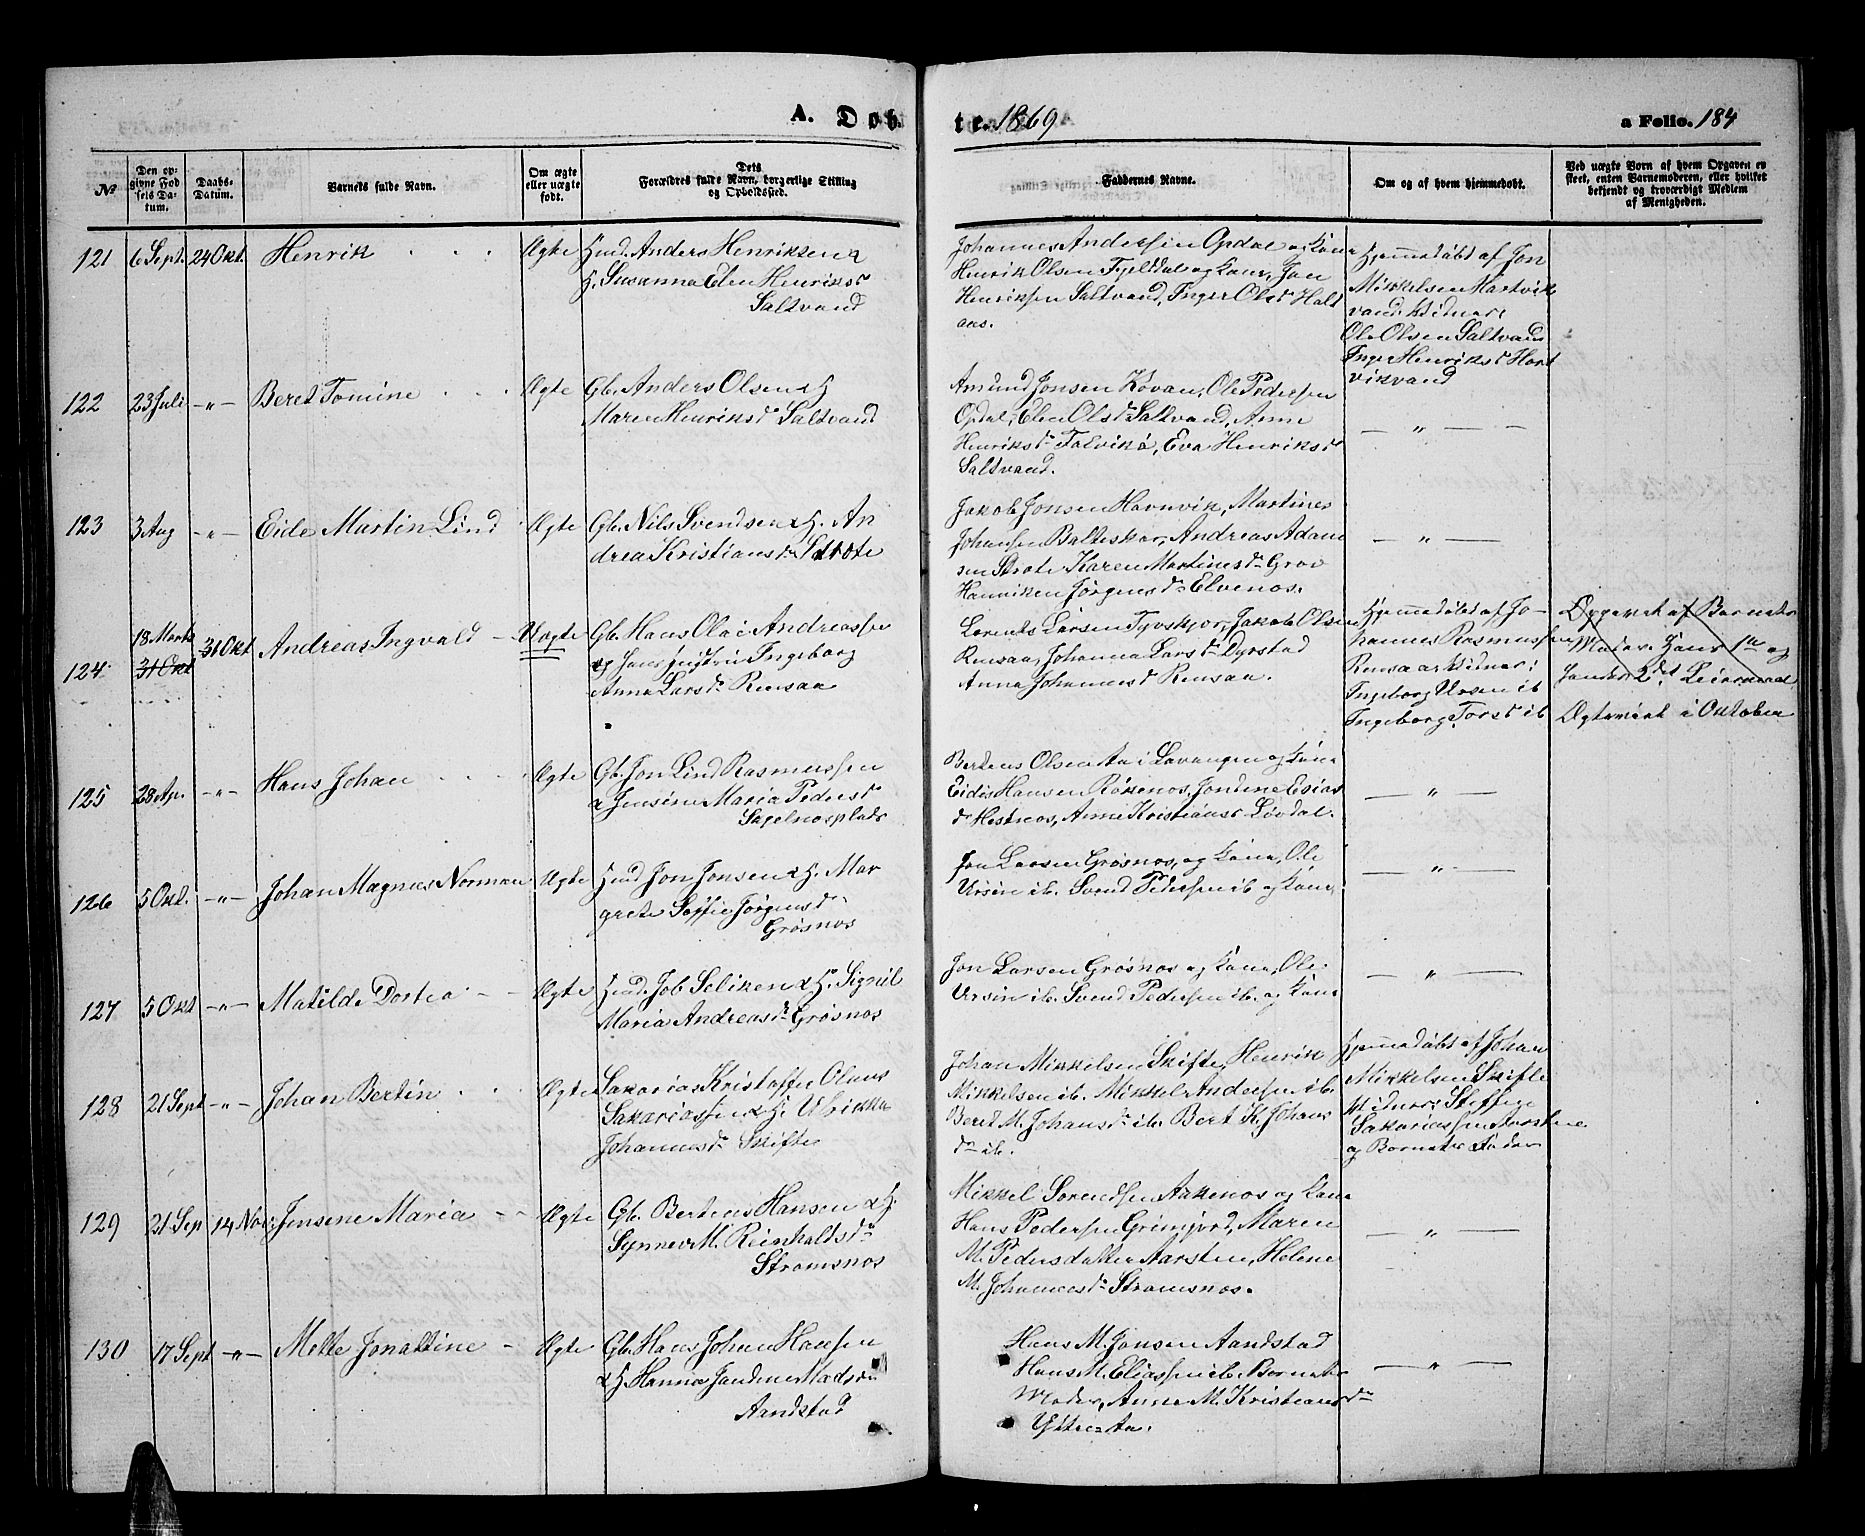 A. Døb
te. 1869
a Folio. 184
No
Den op-
givne Fød
sels Da-
tum.
Daabs-
Datum.
Barnets fulde Navn.
Om ægte
eller uægte
født.
Dets
Forældres fulde Navn, borgerlige Stilling
og Opholdssted.
Faddernes Navne.
Om og af hvem hjemmedøbt.
Ved uægte Børn af hvem Opgaven er
skeet, enten Barnemoderen, eller hvilket
bekjendt og troværdigt Medlem
af Menigheden.
121 6 Sept. 24 Okt. Henrik Ægte
Anders Henriksen &
H. Susanna Elen Henriksd
Saltvand
Johannes Andersen Opdal og Kone
Henrik Olsen Fjelldal og Kone, Jon
Henriksen Saltvand, Inger Olsd Hold
aas.
Hjemmedøbt af Jon
Mikkelsen Hartvik
vand Vidner:
Ole Olsen Saltvand
Inger Henriksd Hart
vikvand
122 23 Juli -"- Beret Tomine Ægte
Gb. Anders Olsen & H
Maren Henriksd Saltvand
Amund Jonsen Kovan, Ole Pedersen
Opdal, Elen Olsd Saltvand, Anne
Henriksd Talvikø, Eva Henriksd
Saltvand.
— " —
123 3 Aug -"- Eide Martin Lind Ægte
Gb. Nils Svendsen & H. An
drea Kristiansd Strøte
Jakob Jonsen Havnvik, Martines
Johansen Balteskar, Andreas Adam
sen Strøte Karen Martinesd Grov
Hanniken Jørgensd Elvenos.
— " —
124 18 Marts
31 Okt
31 Okt Andreas Ingvald Uægte
Gb. Hans Olai Andreassen
og Ingeborg
Anna Larsd Rensaa
Lorents Larsen Tyvskjær, Jakob Olsen
Rensaa, Johanna Larsd Dyrstad
Anna Johannesd Rensaa.
Hjemmedøbt af Jo-
hannes Rasmussen
Rensaa Vidner:
Ingeborg Ursin ib
Ingeborg Torsd ib
Opgivet af Barnets
Moder. Hans 1ste og
2det Leiermaal
Ægteviet i Oktober
125 28 Ap. -"- Hans Johan Ægte
Gb. Jon Lind Rasmussen
& Jensine Maria Pedersd
Sagelnosplads
Bertens Olsen Aa i Lavangen og Kone
Eidis Hansen Røkenos, Jondine Esias
d Hestnos, Anne Kristiansd Løvdal.
— " —
126 5 Okt. -"- Johan Magnus Norman Ægte
Jon Jonsen & H. Mar
grete Soffie Jørgensd
Grøsnos
Jon Larsen Grøsnos, og Kone, Ole
Ursin ib. Svend Pedersen ib og Kone
— " —
127 5 Okt -"- Matilde Dortea Ægte
Job Seliken & H. Signil
Maria Andreasd Grøsnos
Jon Larsen Grøsnos og Kone, Ole
Ursin ib. Svend Pedersen ib. og Kone
— " —
128 21 Sept -"- Johan Bertin Ægte
Sakarias Kristoffer Olaus
Sakariassen & H. Ulrikka
Johannesd Skifte
Johan Mikkelsen Skifte, Henrik
Mikkelsen ib. Mikkel Andersen ib
Beret M. Johansd ib. Bert K. Johans
d ib.
Hjemmedøbt af Johan
Mikkelsen Skifte
Vidner: Steffen
Sakariassen Aarstene
og Barnets Fader
129 21 Sep 14 Nov: Jensene Maria Ægte
Gb. Berteus Hansen & H.
Synnev M. Reinholdsd
Stromsnos
Mikkel Sorendsen Aakenos og Kone
Hans Pedersen Grimjord, Maren
M. Pedersdatter Aarsten, Helene
M. Johannesd Stromsnos.
— " —
130 17 Sept -"- Mette Jonattine Ægte
Gb. Hans Johan Hansen
& H. Hanna Jondine Madsd
Aandstad
Hans M. Jonsen Aandstad
Hans M. Eliassen ib. Barnets
Moder, Anne M. Kristiansd
Yttre-Aa.
— " —